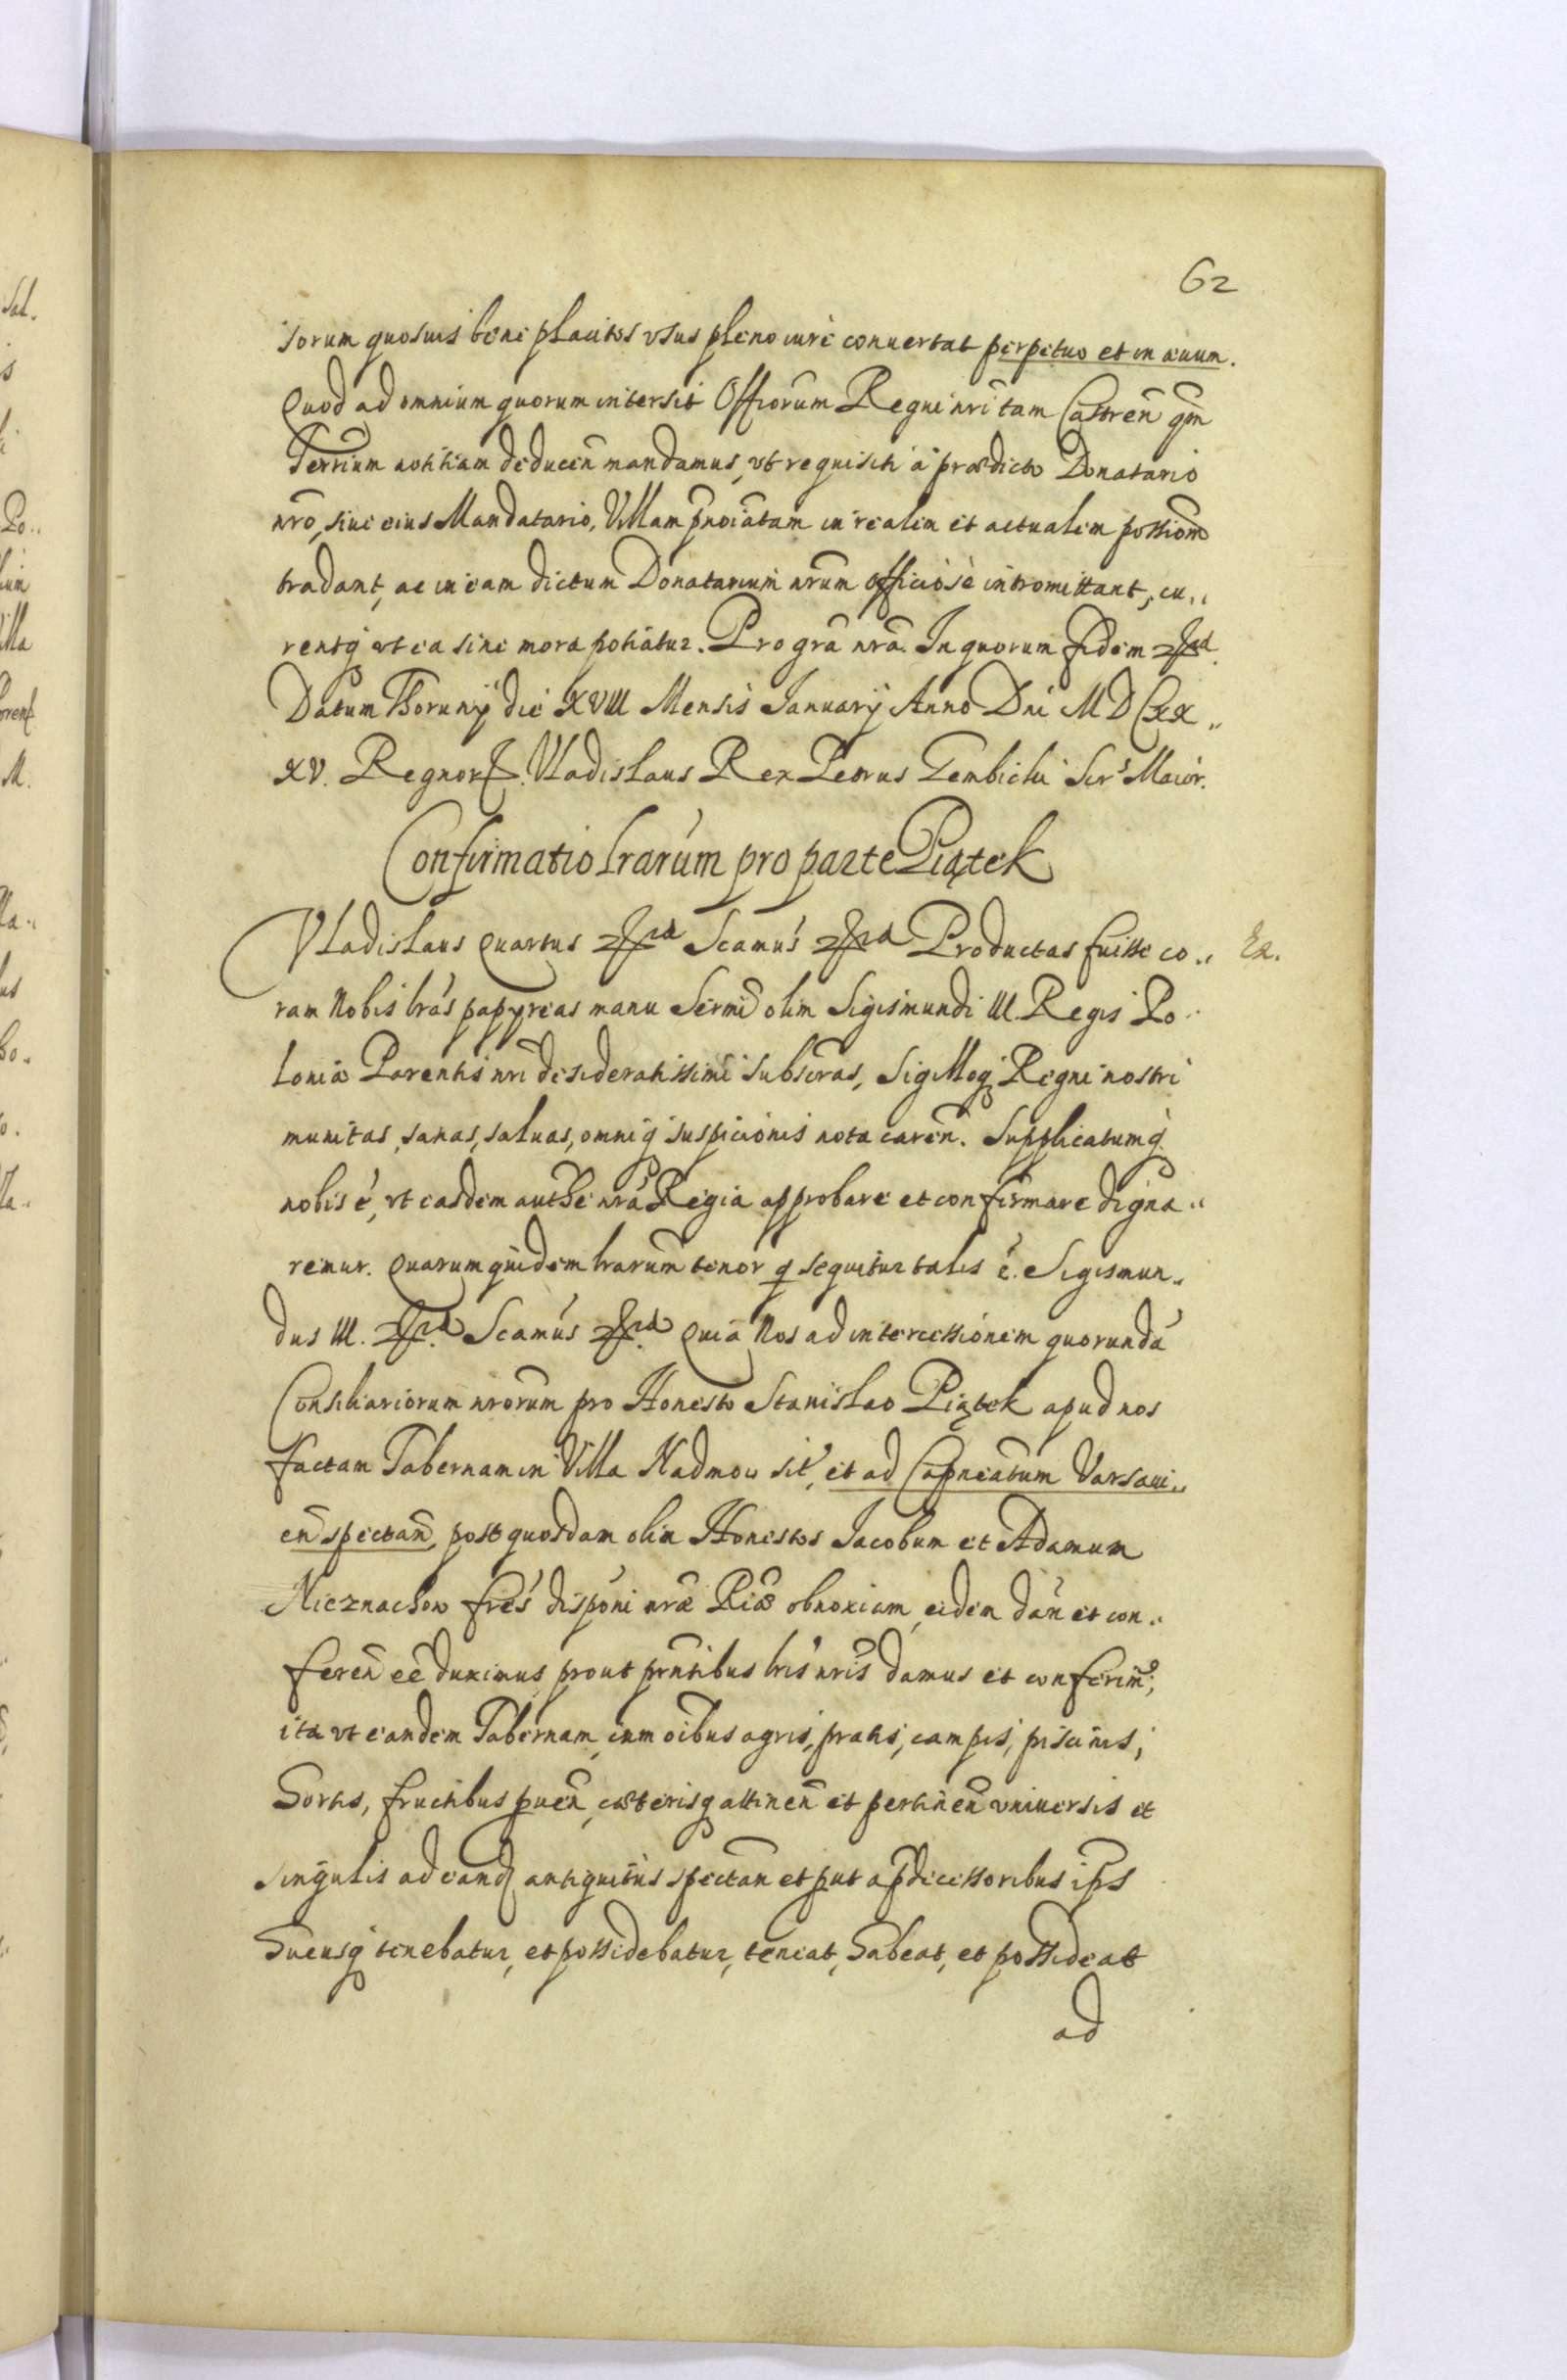 62
sorum quosuis bene placitos vsus pleno iure conuertat perpetuo et in æuum.
Quod ad omnium quorum intersit Offiorum Regni nri tam Castren qm
Terrium notitiam deducen mandamus, vt requisiti a prædicto Donatario
nro, siue eius Mandatario, Villam pnoiatam in realem et actualem possionem
tradant, ac in eam dictum Donatarium nrum officiose intromittant, cu„
rentq vt ea sine mora potiatur. Pro gra nra. In quorum fidem
Datum Thorunij die XVIII Mensis Januarij Anno Dni MDCXX„
XV. Regnor. Vladislaus Rex Petrus Gembicki Secr Maior.
Confirmatio lrarum pro parte Piątek
Vladislaus Quartus Scamus Productas fuisse co„ Ex.
ram Nobis lras papyreas manu Sermi olim Sigismundi III Regis Po„
loniæ Parentis nri desideratissimi subscras, Sigilloq Regni nostri
munitas, sanas, saluas, omniq suspicionis nota caren. Supplicatumq
nobis é, vt easdem authe nra Regia approbare et confirmare digna„
remur. Quarum quidem lrarum tenor q sequitur talis é. Sigismun„
dus III. Scamus Quia Nos ad intercessionem quorundá
Consiliariorum nrorum pro Honesto Stanislao Piątek apud nos
factam Tabernam in Villa Nadmow sit, et ad Capneatum Varsaui„
en spectan, post quosdam olim Honestos Jacobum et Adamum
Nieznachow fres disponi nræ Riæ obnoxiam, eidem dan et con„
feren eé duximus prout pntibus lris nris damus et conferim;
ita vt eandem Tabernam, cum oibus agris, pratis, campis, piscinis,
hortis, fructibus puen, cæterisq attinen et pertinen vniuersis et
singulis ad eand antiquitus spectan et put a pdecessoribus ips
hucusq tenebatur, et possidebatur, teneat, habeat, et possideat
ad